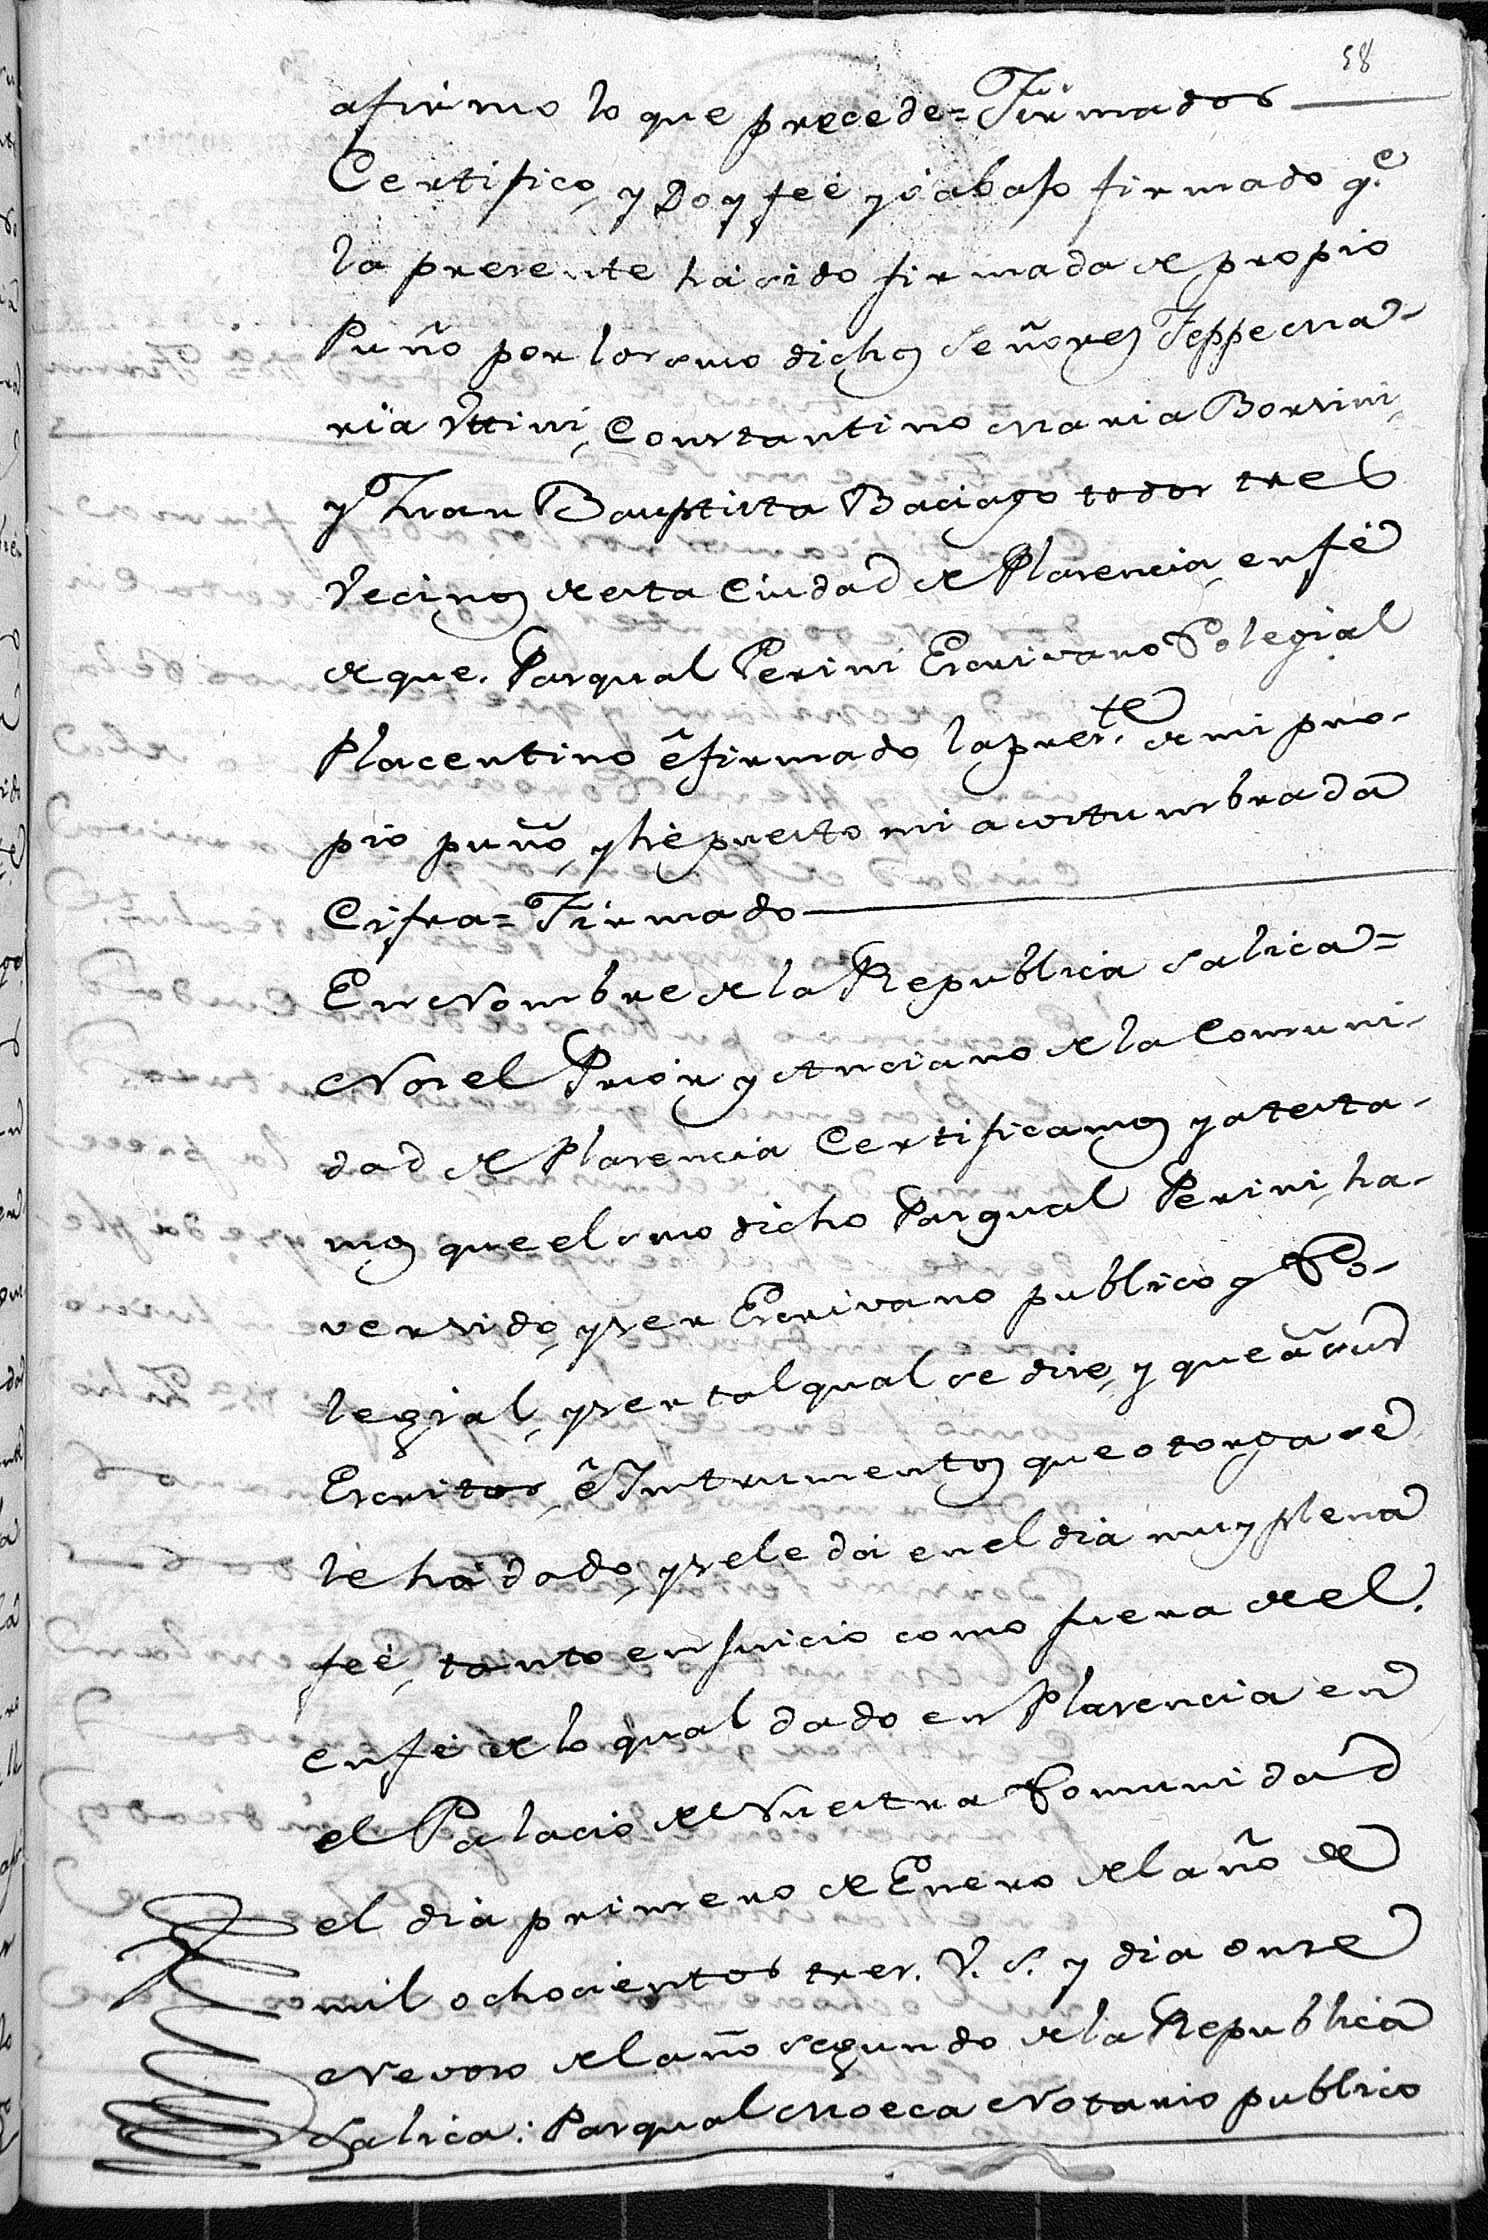 58
afirmo lo que precede = Firmados
Certifico, y Doy feé yó abajo firmado q.e
la presente há sido firmada de propio
Puño por los smo dichos Señores Jeppe Ma-
ria Uttini, Constantino Maria Borsini,
y Juan Bauptista Baciago todos tres
Vecinos de esta Ciudad de Plasencia, en fé
de que. Pasqual Perini Escrivano Colegial
Placentino é firmado la pres.te de mi pro-
pio puño, y hé puesto mi acostumbrada
Cifra = Firmado
En Nombre de la Republica Salica =
Nos el Prior y Anciano de la Comuni-
dad de Plasencia Certificamos y atesta-
mos que el smo dicho Pasqual Perini, ha-
ver sido, y ser Escrivano publico y Co-
legial, y ser tal qual se dise, y que â sus
Escritos, ê Instrumentos que otorga se
lé há dado, y se le dá en el dia muy plena
feé, tanto en juicio como fuera de el.
en fé de lo qual dado en Plasencia en
el Palacio de Nuestra Comunidad
el dia primero de Enero del año de
mil ochocientos tres. V. S. y dia onse
Nevoso del año segundo de la Republica
Salica: Pasqual Moeca Notario publico